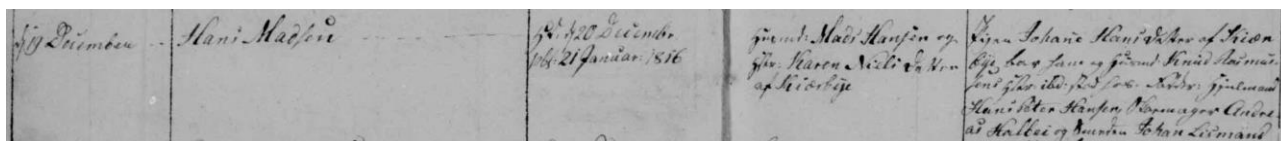 d 19 December
Hans Madsen
hd: d 20 Decembr
publ: 21 Januar: 1816
Huusmd: Mads Hansen og
Hstr: Karen Niels Datter
af Kiærbye
Pigen Johane Hans Datter af Kiær
bye bar ham og Huusmd: Knud Rasmus-
sens Hstr: ibd: stod hos. Faddr:
Hans Peter Hansen, Skoemager Andre-
as Halbei og Johan Lismand